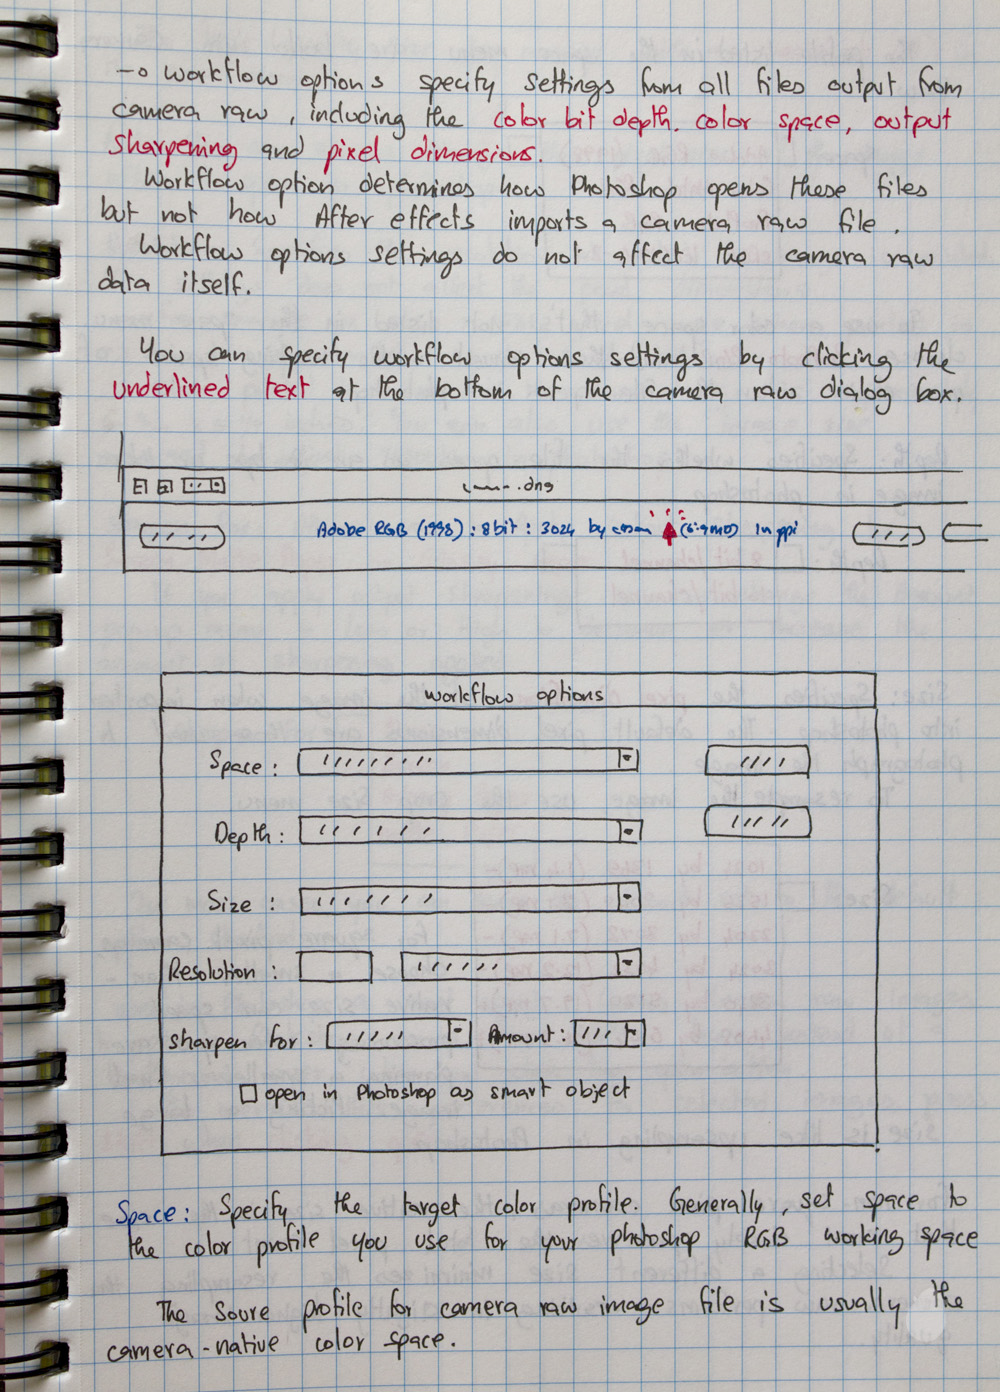 → Workflow options specify settings from all files output from
camera raw, including the color bit depth. color space, output
sharpening and pixel dimensions.
Workflow option determines how Photoshop opens these files
but not how After effects imports a camera raw file.
Workflow options settings do not affect the camera raw
data itself.
You can specify workflow options settings by clicking the
underlined text at the bottom of the camera raw dialog box.
.dng
Adobe RGB (1998) : 8bit : 3024 by (6.9MP) In ppi
workflow options
Space :
Depth :
Size :
Resolution :
Sharpen for : Amount :
open in Photoshop as smart object
Space : Specify the target color profile. Generally, set space to
the color profile you use for your photoshop RGB working space
The Soure profile for camera raw image file is usually the
camera-native color space.